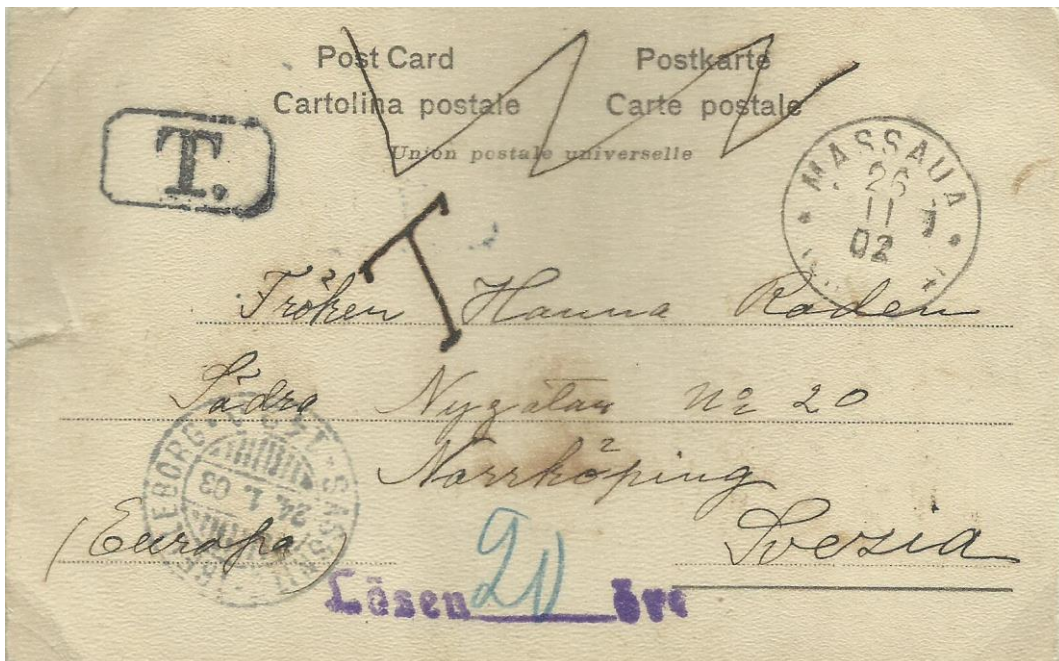 Post Card Postkarte
Cartolina postale Carte postale
Union postale universelle
T.
MASSAUA
26
11
02
T
Fröken Hanna Roden
Södra Nygatan No 20
Norrköping
(Europa) Svezia
24. 1. 03
Lösen 20 öre